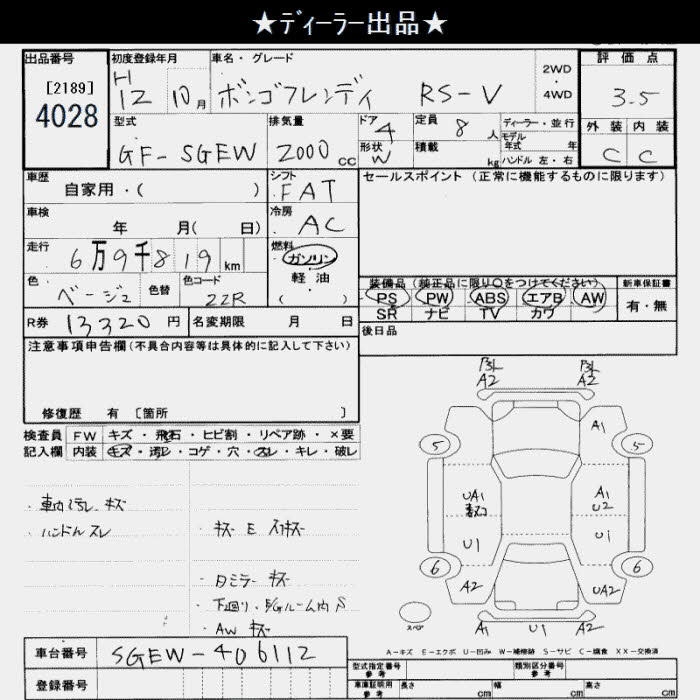 ★ディーラー出品★
出品番号
[2189]
4028
初度登録年月
H
12 10月
車名・グレード
ボンゴフレンディ RS-V
2WD
・
4WD
評価点
3.5
外装 内装
C C
型式
GF-SGEW
排気量
2000 cc
ドア 4
形状 W
定員 8 人
積載 kg
ディーラー・並行
モデル
年式 年
ハンドル 左・右
車歴
自家用・( )
シフト
FAT
車検
年 月( 日)
冷房
AC
走行
6万9千819 km
燃料
ガソリン
軽油
( )
色
ベージュ
色替
色コード
22R
R券 13320 円
名変期限 月 日
セールスポイント (正常に機能するものに限ります)
装備品 (純正品に限り○をつけてください)
PS PW ABS エアB AW
SR ナビ TV カワ
新車保証書
有・無
後日品
注意事項申告欄(不具合内容等は具体的に記入して下さい)
修復歴 有 [箇所 ]
検査員
記入欄
FW キズ・飛石・ヒビ割・リペア跡・×要
内装 キズ・汚レ・コゲ・穴・スレ・キレ・破レ
・車内汚レ キズ
・ハンドルスレ
・キズ E スリキズ
・Dミラー キズ
・下廻り・E/Gルーム内 S
・AW キズ
A2 A2
A1
5 5
UA1
A1
U2
U1 U1
6 6
A2 UA2
スペア
A1 U1 A2
A-キズ E-エクボ U-凹み W-補修跡 S-サビ C-腐食 XX-交換済
車台番号 SGEW-406112
登録番号
型式指定番号
参考
類別区分番号
参考
車庫証明用
参考
長さ cm 幅 cm 高さ cm